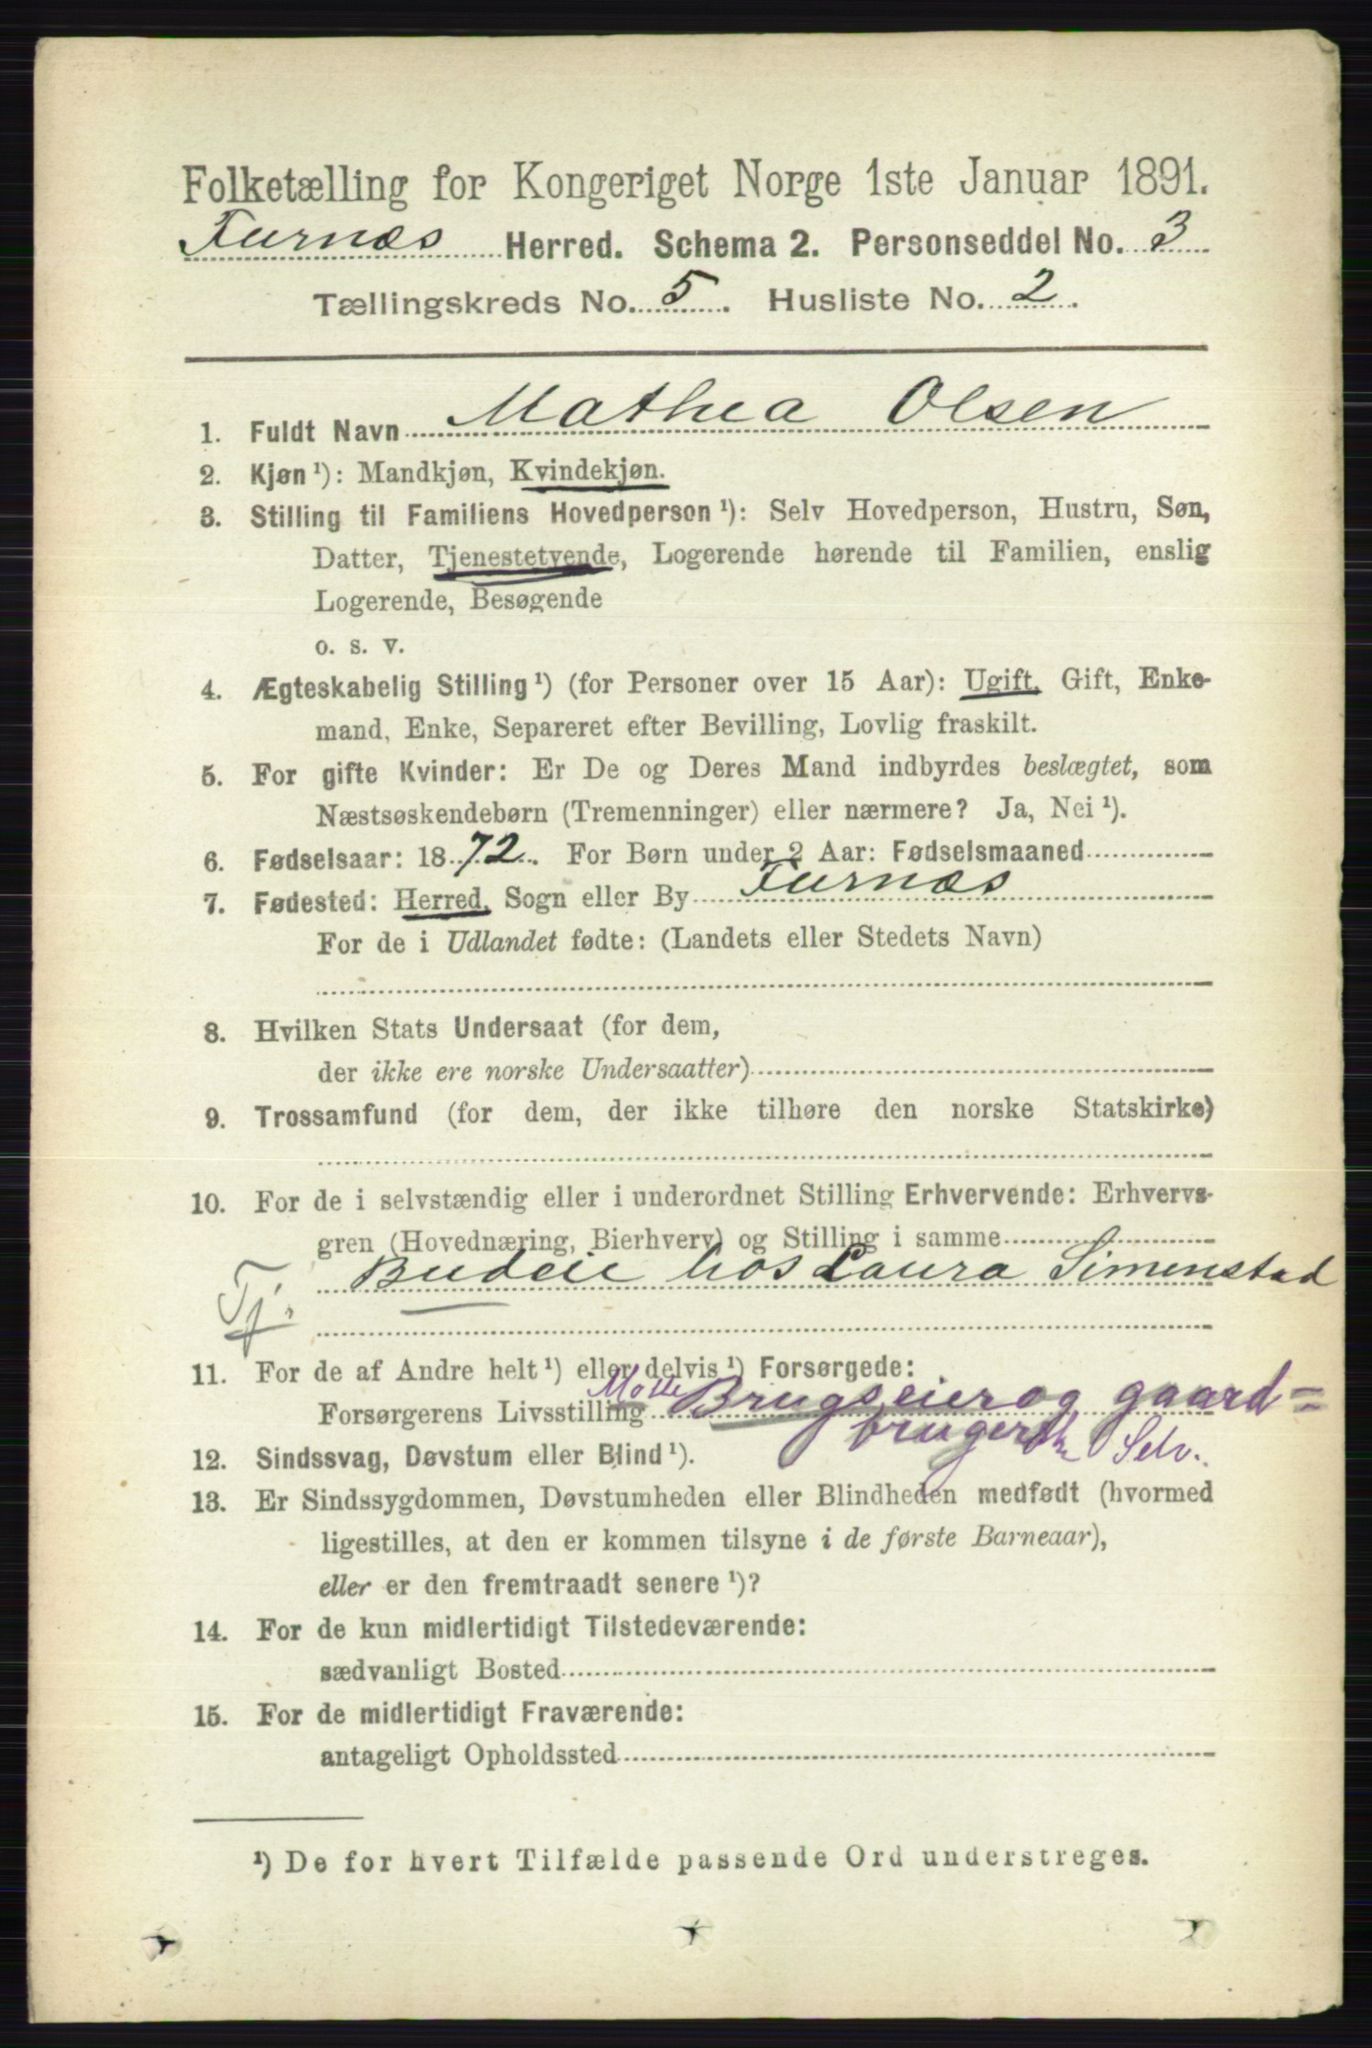 Folketælling for Kongeriget Norge 1ste Januar 1891.
Furnæs Herred. Schema 2. Personseddel No. 3
Tællingskreds No. 5. Husliste No. 2.
1. Fuldt Navn Mathea Olsen
2. Kjøn ¹): Mandkjøn, Kvindekjøn.
3. Stilling til Familiens Hovedperson ¹): Selv Hovedperson, Hustru, Søn,
Datter, Tjenestetyende, Logerende hørende til Familien, enslig
Logerende, Besøgende
o. s. v.
4. Ægteskabelig Stilling ¹) (for Personer over 15 Aar): Ugift, Gift, Enke-
mand, Enke, Separeret efter Bevilling, Lovlig fraskilt.
5. For gifte Kvinder: Er De og Deres Mand indbyrdes beslægtet, som
Næstsøskendebørn (Tremenninger) eller nærmere? Ja, Nei ¹).
6. Fødselsaar: 1872. For Børn under 2 Aar: Fødselsmaaned
7. Fødested: Herred, Sogn eller By Furnæs
For de i Udlandet fødte: (Landets eller Stedets Navn)
8. Hvilken Stats Undersaat (for dem,
der ikke ere norske Undersaatter)
9. Trossamfund (for dem, der ikke tilhøre den norske Statskirke)
10. For de i selvstændig eller i underordnet Stilling Erhvervende: Erhvervs-
gren (Hovednæring, Bierhverv) og Stilling i samme
Budeie hos Laura Simenstad
Tj.
11. For de af Andre helt ¹) eller delvis ¹) Forsørgede:
Forsørgerens Livsstilling Mølle Brugseier og gaard=
bruger Selv.
12. Sindssvag, Døvstum eller Blind ¹).
13. Er Sindssygdommen, Døvstumheden eller Blindheden medfødt (hvormed
ligestilles, at den er kommen tilsyne i de første Barneaar),
eller er den fremtraadt senere ¹)?
14. For de kun midlertidigt Tilstedeværende:
sædvanligt Bosted
15. For de midlertidigt Fraværende:
antageligt Opholdssted
¹) De for hvert Tilfælde passende Ord understreges.